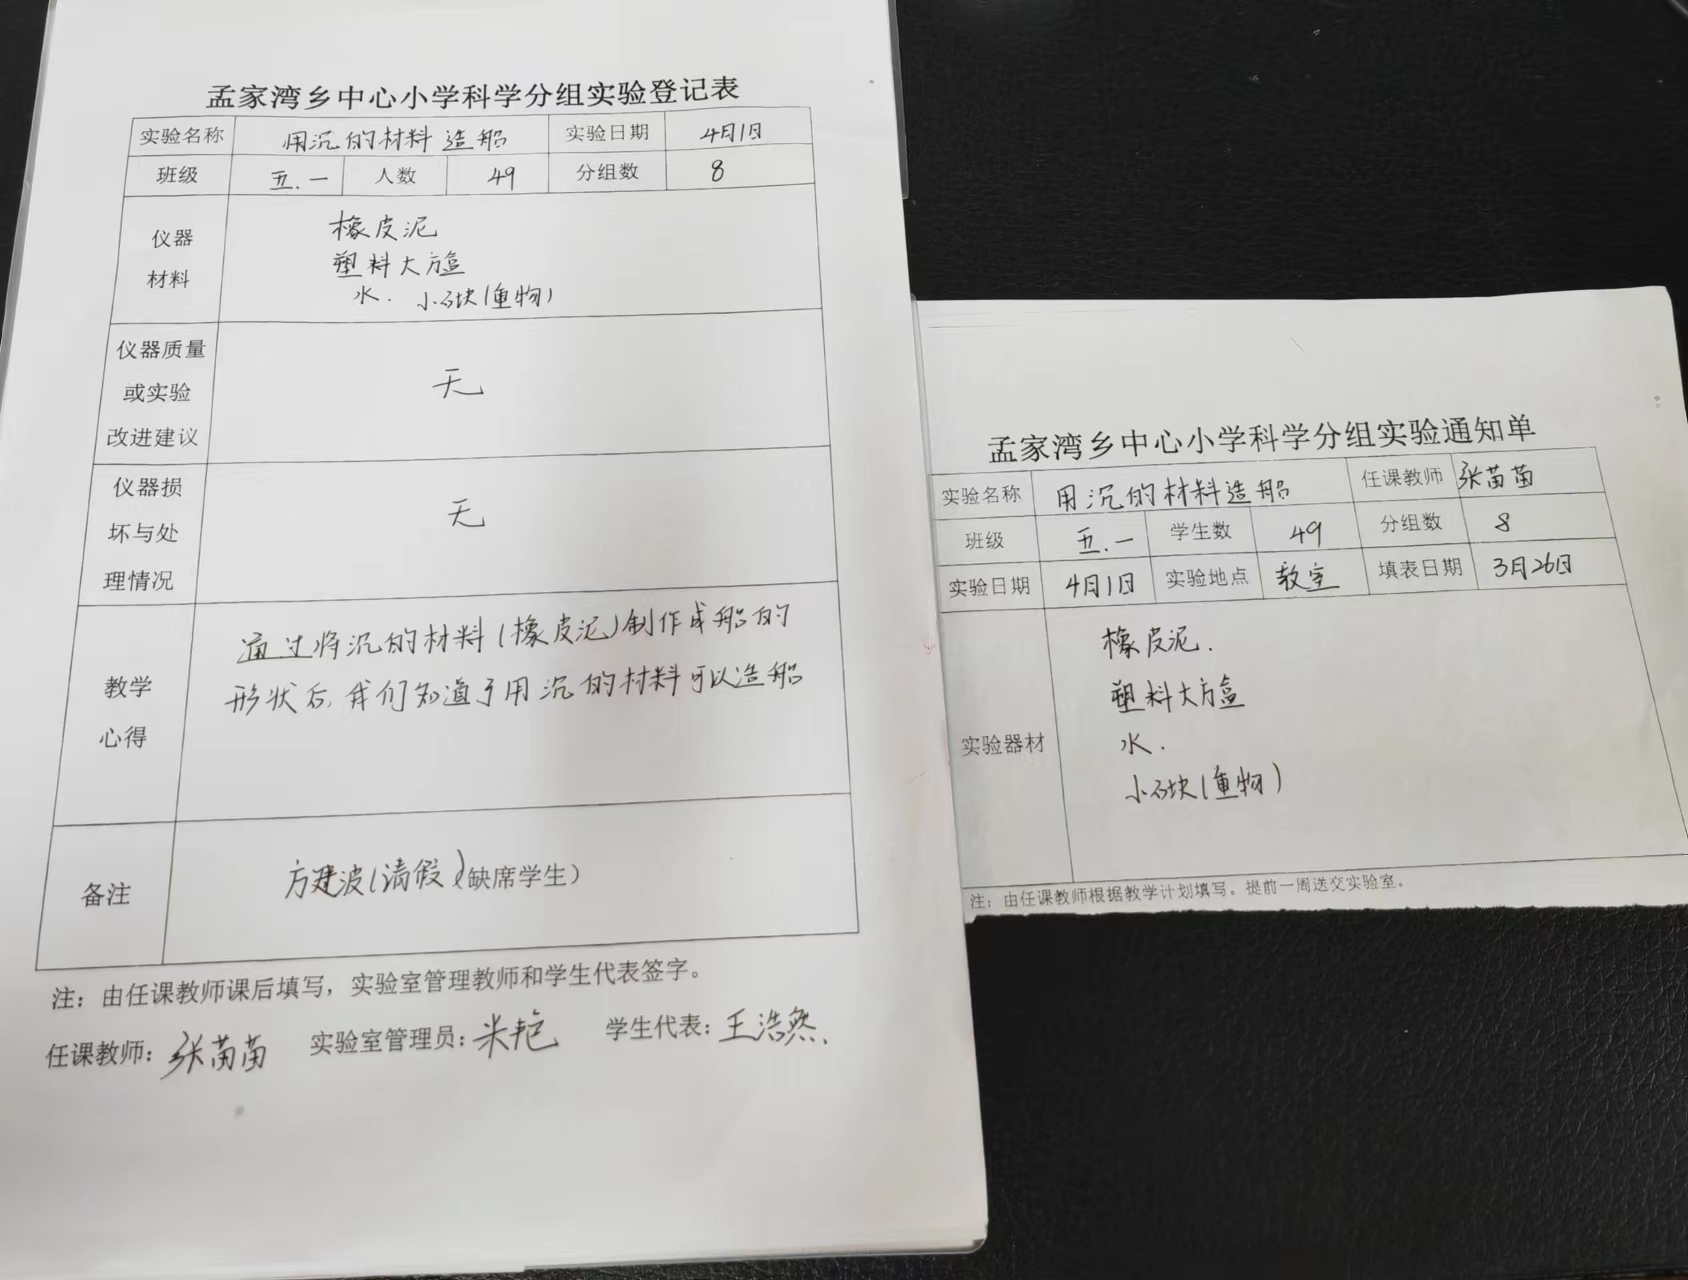 孟家湾乡中心小学科学分组实验登记表
实验名称 用沉的材料造船 实验日期 4月1日
班级 五.一 人数 49 分组数 8
仪器
材料
橡皮泥
塑料大方盒
水. 小石块(重物)
仪器质量
或实验
改进建议
无
仪器损
坏与处
理情况
无
教学
心得
通过将沉的材料(橡皮泥)制作成船的
形状后,我们知道了用沉的材料可以造船
备注
方建波(请假)(缺席学生)
注:由任课教师课后填写,实验室管理教师和学生代表签字。
任课教师:张苗苗 实验室管理员:米艳 学生代表:王浩然.
孟家湾乡中心小学科学分组实验通知单
实验名称 用沉的材料造船 任课教师 张苗苗
班级 五.一 学生数 49 分组数 8
实验日期 4月1日 实验地点 教室 填表日期 3月26日
实验器材
橡皮泥.
塑料大方盒
水.
小石块(重物)
注:由任课教师根据教学计划填写。提前一周送交实验室。